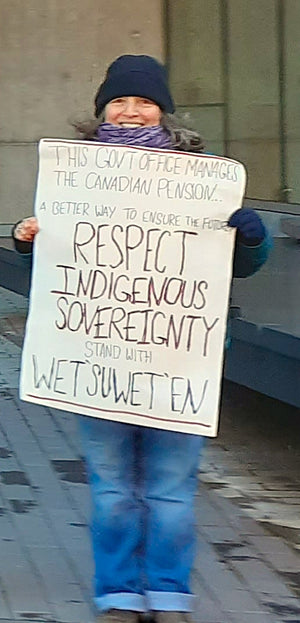 THIS GOV'T OFFICE MANAGES
THE CANADIAN PENSION...
A BETTER WAY TO ENSURE THE FUTURE
RESPECT
INDIGENOUS
SOVEREIGNTY
STAND WITH
WET'SUWET'EN